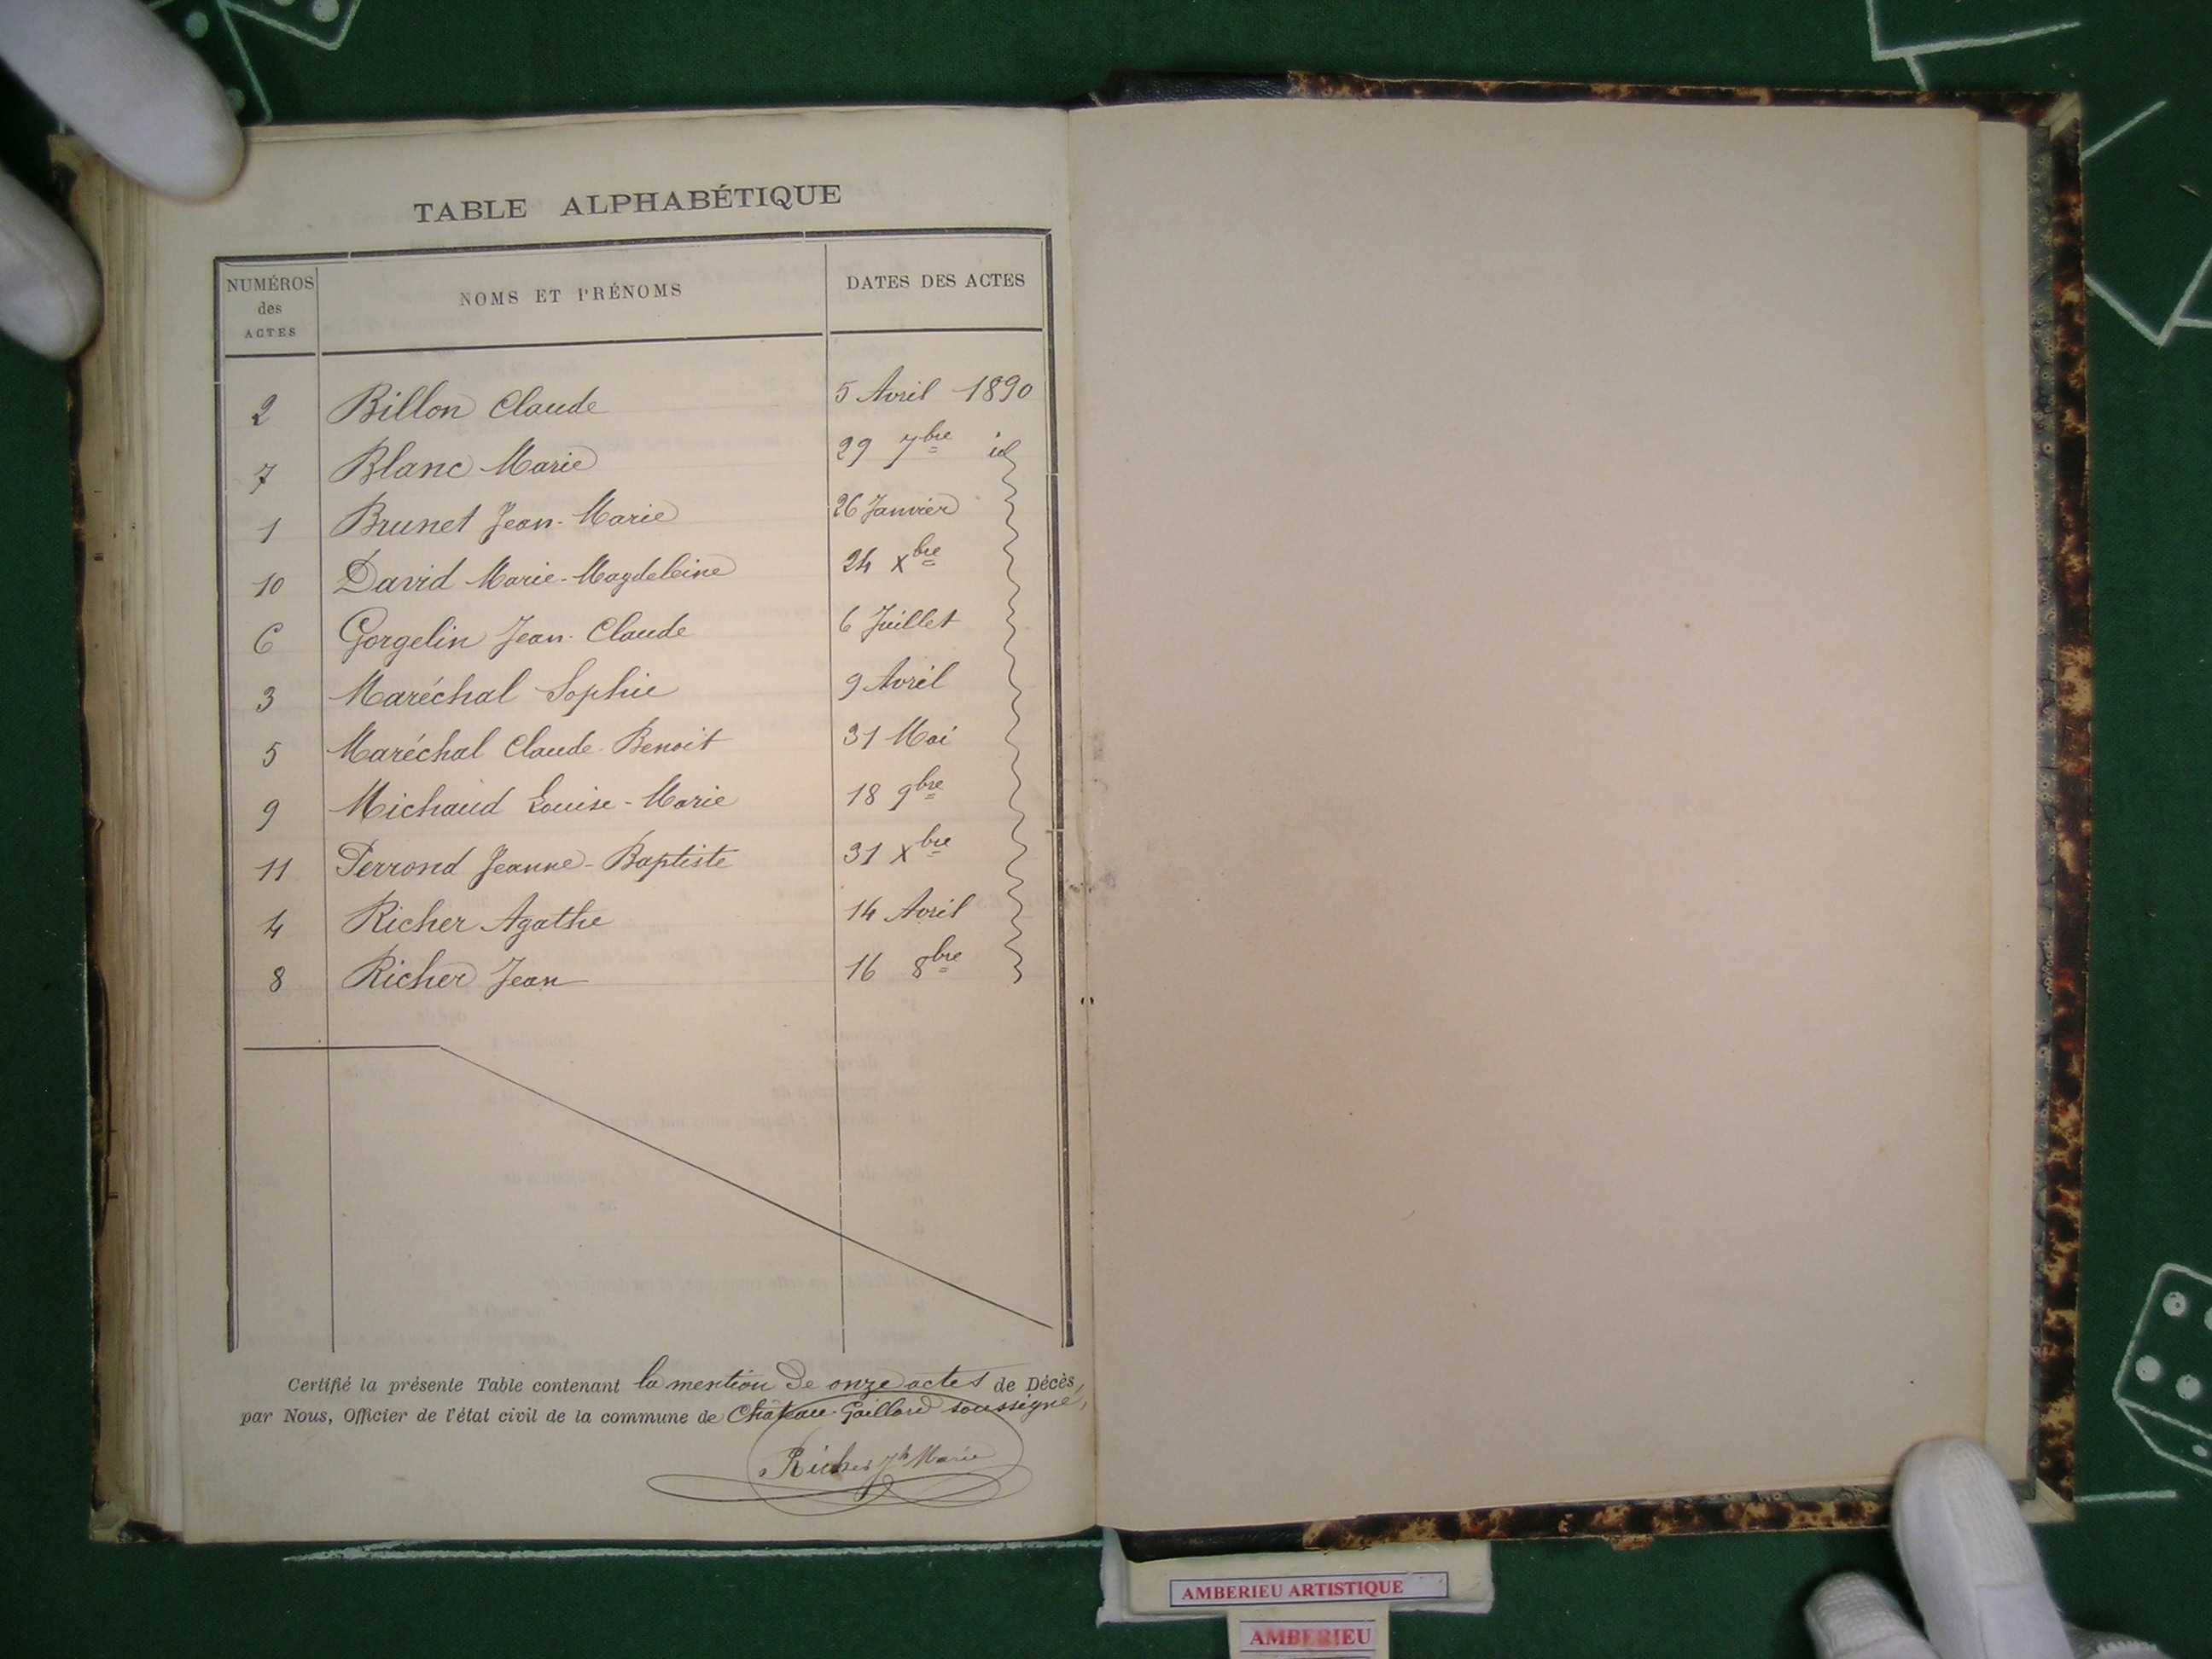 TABLE ALPHABÉTIQUE
NUMÉROS des ACTES NOMS ET PRÉNOMS DATES DES ACTES
2 Billon Claude 5 Avril 1890
7 Blanc Marie 29 7bre id
1 Brunet Jean-Marie 26 Janvier
10 David Marie-Magdeleine 24 Xbre
6 Gorgelin Jean-Claude 6 Juillet
3 Maréchal Sophie 9 Avril
5 Maréchal Claude-Benoit 31 Mai
9 Michaud Louise-Marie 18 9bre
11 Perrond Jeanne-Baptiste 31 Xbre
4 Richer Agathe 14 Avril
8 Richer Jean 16 8bre
Certifié la présente Table contenant la mention de onze actes de Décès,
par Nous, Officier de l'état civil de la commune de Château-Gaillard soussigné,
Richer Jh Marie
AMBERIEU ARTISTIQUE
AMBERIEU